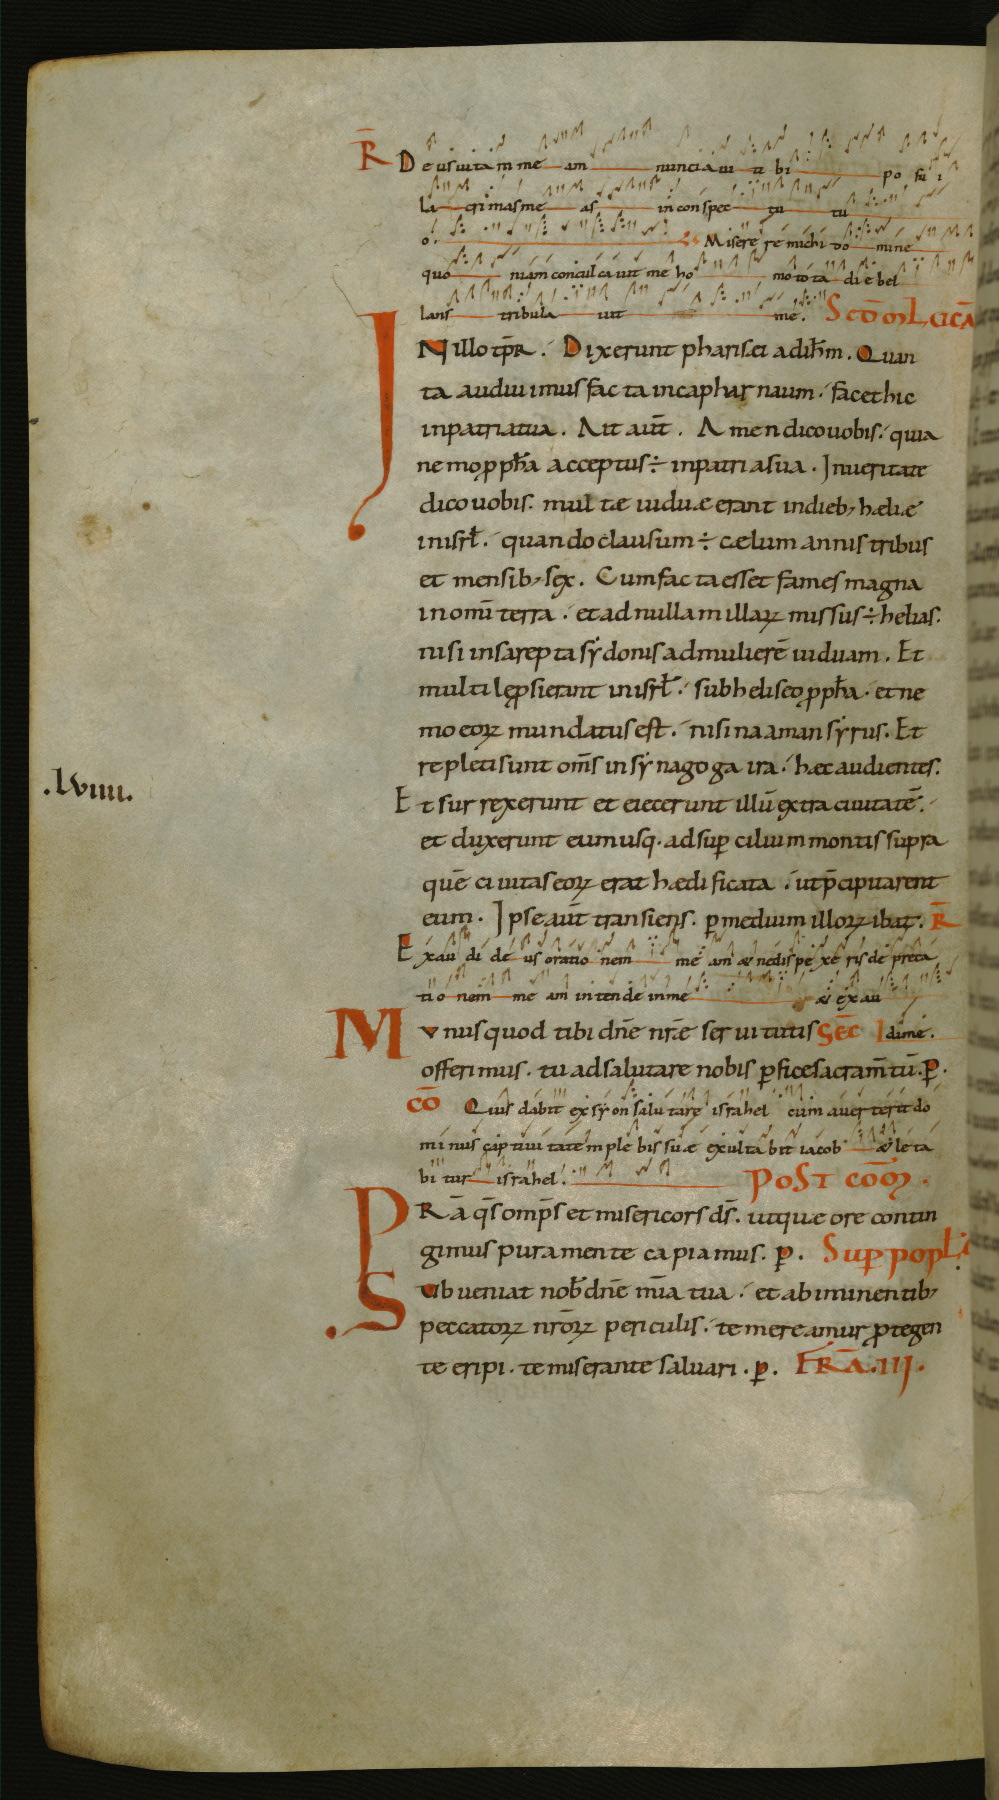 R̄ Deus uitam meam nunciaui tibi posui
lacrimas meas in conspectu tu
o. Miserere michi domine
quoniam conculcauit me homo tota die bel
lans tribulauit me. Scd̄m Lucā
IN illo tp̄r. Dixerunt pharisei ad ih̄m. Quan
ta audiuimus facta in capharnaum. fac et hic
in patria tua. Ait aut̄. Amen dico uobis. quia
nemo ꝓph̄a acceptus ÷ in patria sua. In ueritate
dico uobis. multæ uiduæ erant in dieb; hæliæ
in isrł. quando clausum ÷ cælum annis tribus
et mensib; sex. Cum facta esset fames magna
in omni terra. et ad nullam illaꝝ missus ÷ helias.
nisi in sarepta sydonis ad mulierē uiduam. Et
multi lęꝓsi erant in isrł. sub heliseo ꝓph̄a. et ne
mo eoꝝ mundatus est. nisi naaman syrus. Et
repleti sunt om̄s in synagoga ira. hæc audientes.
.lviiii.
Et surrexerunt et eiecerunt illū extra ciuitatē.
et duxerunt eum usq. ad suꝑcilium montis supra
quē ciuitas eoꝝ erat hædificata. ut p̄cipitarent
eum. Ipse aut̄ transiens. ꝑ medium illoꝝ ibat. R̄
Exaudi deus orationem meam & ne dispexeris depreca
tionem meam intende in me & exau
di me. Sēc
Munus quod tibi dn̄e nr̄æ seruitutis
offerimus. tu ad salutare nobis ꝑfice sacram̄tū. ꝑ.
cō Quis dabit ex syon salutare israhel cum auerterit do
minus captiuitatem plebis suæ exultabit iacob & lęta
bitur israhel. Post cōm̄.
PRā q̄s omp̄s et misericors ds̄. ut quæ ore contin
gimus pura mente capiamus. ꝑ. Suꝑ popł
Subueniat nob̄ dn̄e mīa tua. et ab iminentib;
peccatoꝝ nr̄oꝝ periculis. te mereamur ꝓtegen
te eripi. te miserante saluari. ꝑ. FRā.III.